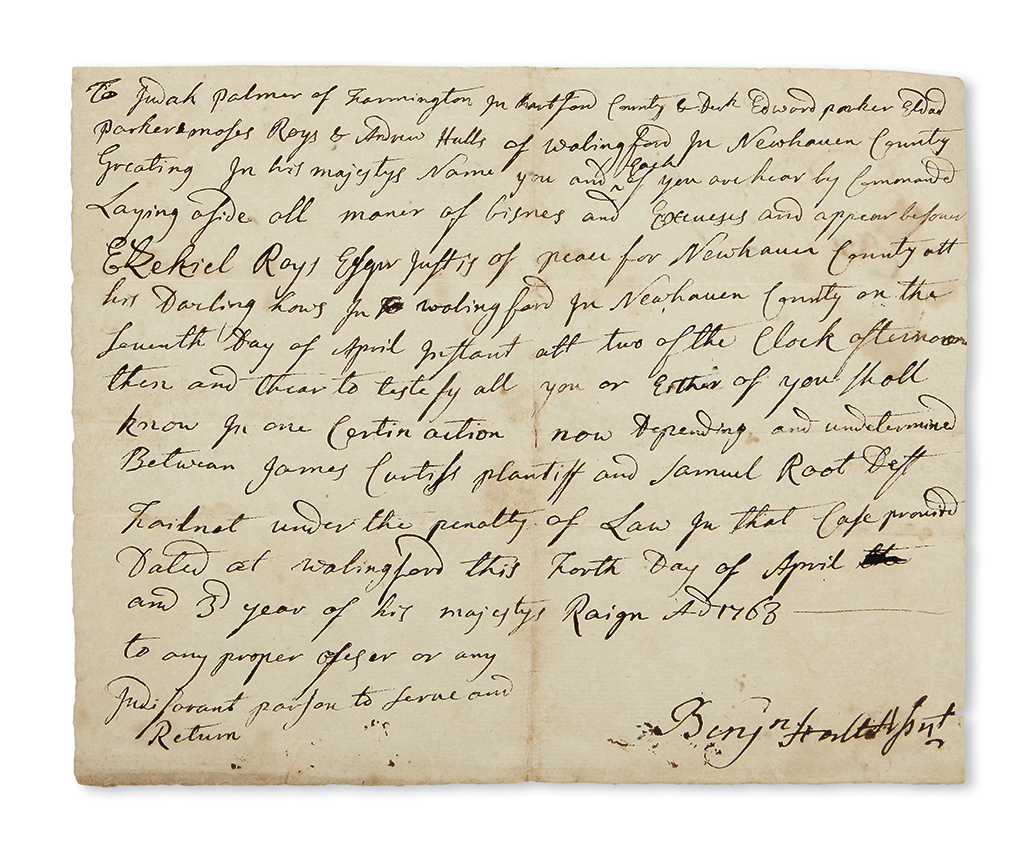 To Judah palmer of Farmington In hartford County & Deck Edward parker Eldad
parker & moses Roys & Andrew Hulls of walingford In Newhaven County
Greating In his majestys Name you and Each of you are hear by Commanded
Laying aside all maner of bisnes and Excuses and appear before
Ezekiel Roys Esqur Justis of peace for Newhaven County att
his Darling hows In walingford In Newhaven County on the
Seventh Day of April Instant att two of the Clock afternoon
then and thear to testefy all you or Either of you shall
know In one Certin action now Depending and undetermined
Betwean James Curtiss plantiff and Samuel Root Deft
Failnot under the penalty of Law In that Case provided
Dated at walingford this Forth Day of April
and 3d year of his majestys Raign AD 1763
to any proper ofeser or any
Indifarant parson to Serve and
Return
Benjn Holt Assnt